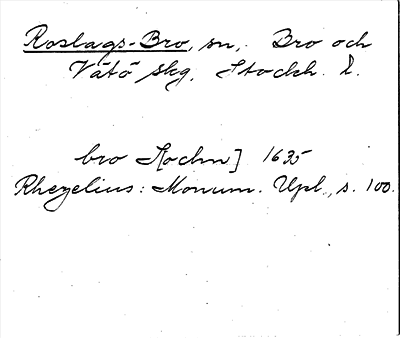 Roslags-Bro, sn, Bro och
Vätö skg. Stockh. l.
bro S[ochn] 1635
Rhezelius: Monum. Upl., s. 100.